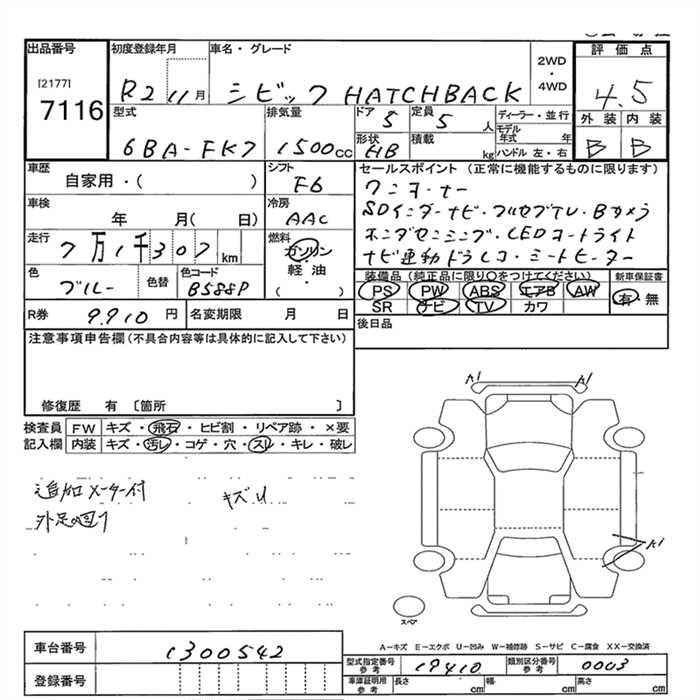 出品番号
[2177]
7116
初度登録年月
R2 11月
車名・グレード
シビック HATCHBACK
2WD
・
4WD
評価点
4.5
外装 内装
B B
型式
6BA-FK7
排気量
1500cc
ドア
5
定員
5人
形状
HB
積載
kg
ディーラー・並行
モデル年式 年
ハンドル 左・右
車歴
自家用・( )
シフト
F6
車検
年 月( 日)
冷房
AAC
走行
7万1千307km
燃料
ガソリン
軽・油
( )
色
ブルー
色替
色コード
B588P
R券
9,910円
名変期限 月 日
セールスポイント (正常に機能するものに限ります)
ワンオーナー
SDインターナビ・フルセグTV・Bカメラ
ホンダセンシング・LEDオートライト
ナビ連動ドラレコ・ミートヒーター
装備品(純正品に限り○をつけてください)
PS PW ABS エアB AW
SR ナビ TV カワ
新車保証書
有・無
後日品
注意事項申告欄(不具合内容等は具体的に記入して下さい)
修復歴 有 〔箇所 〕
検査員記入欄
FW キズ・飛石・ヒビ割・リペア跡・×要
内装 キズ・汚レ・コゲ・穴・スレ・キレ・破レ
追加メーター付
キズU
A1 A1
A1
スペア
A-キズ E-エクボ U-凹み W-補修跡 S-サビ C-腐食 XX-交換済
車台番号
1300542
登録番号
型式指定番号 参考
19410
類別区分番号 参考
0003
車庫証明用 参考
長さ cm 幅 cm 高さ cm